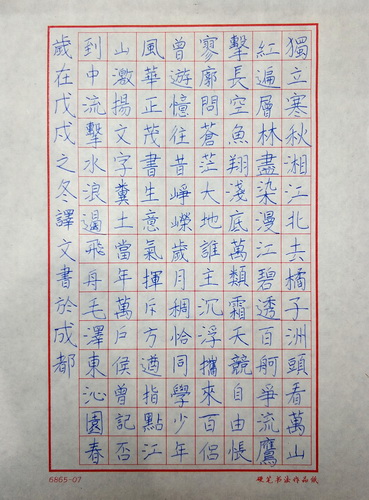 獨立寒秋湘江北去橘子洲頭看萬山
紅遍層林盡染漫江碧透百舸爭流鷹
擊長空魚翔淺底萬類霜天競自由悵
寥廓問蒼茫大地誰主沉浮攜來百侶
曾遊憶往昔崢嶸歲月稠恰同學少年
風華正茂書生意氣揮斥方遒指點江
山激揚文字糞土當年萬戶侯曾記否
到中流擊水浪遏飛舟毛澤東沁園春
歲在戊戌之冬譯文書於成都
6865-07
硬笔书法作品纸